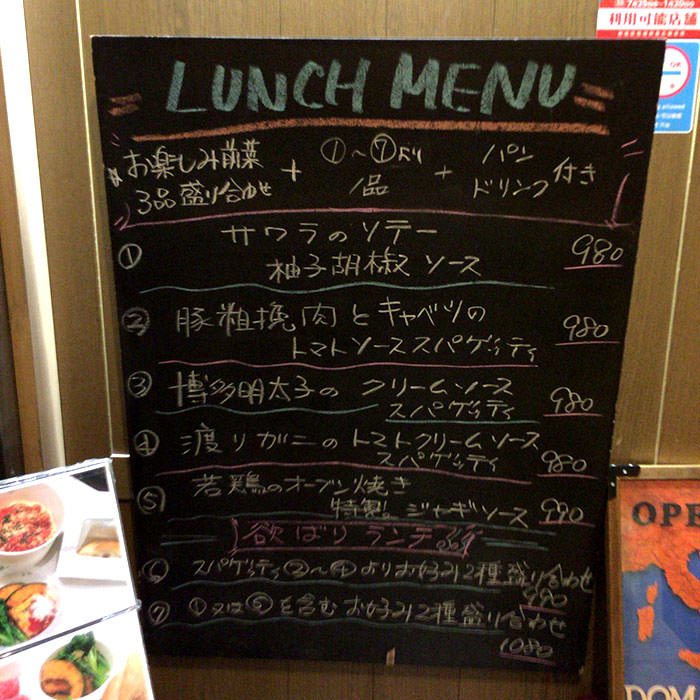 7月25日~1月20日
利用可能店舗
LUNCH MENU
お楽しみ前菜 + ①~⑦より + パン 付き
3品盛り合わせ 1品 ドリンク
① サワラのソテー
柚子胡椒ソース 980
② 豚粗挽肉とキャベツの
トマトソーススパゲッティ 980
③ 博多明太子の クリームソース
スパゲッティ 980
④ 渡りガニのトマトクリームソース
スパゲッティ 980
⑤ 若鶏のオーブン焼き
特製 ジャポネソース 990
欲ばりランチ
⑥ スパゲッティ②~④よりお好み2種盛り合わせ
990
⑦ ①又は⑤を含むお好み2種盛り合わせ
1080
OPE
DOM